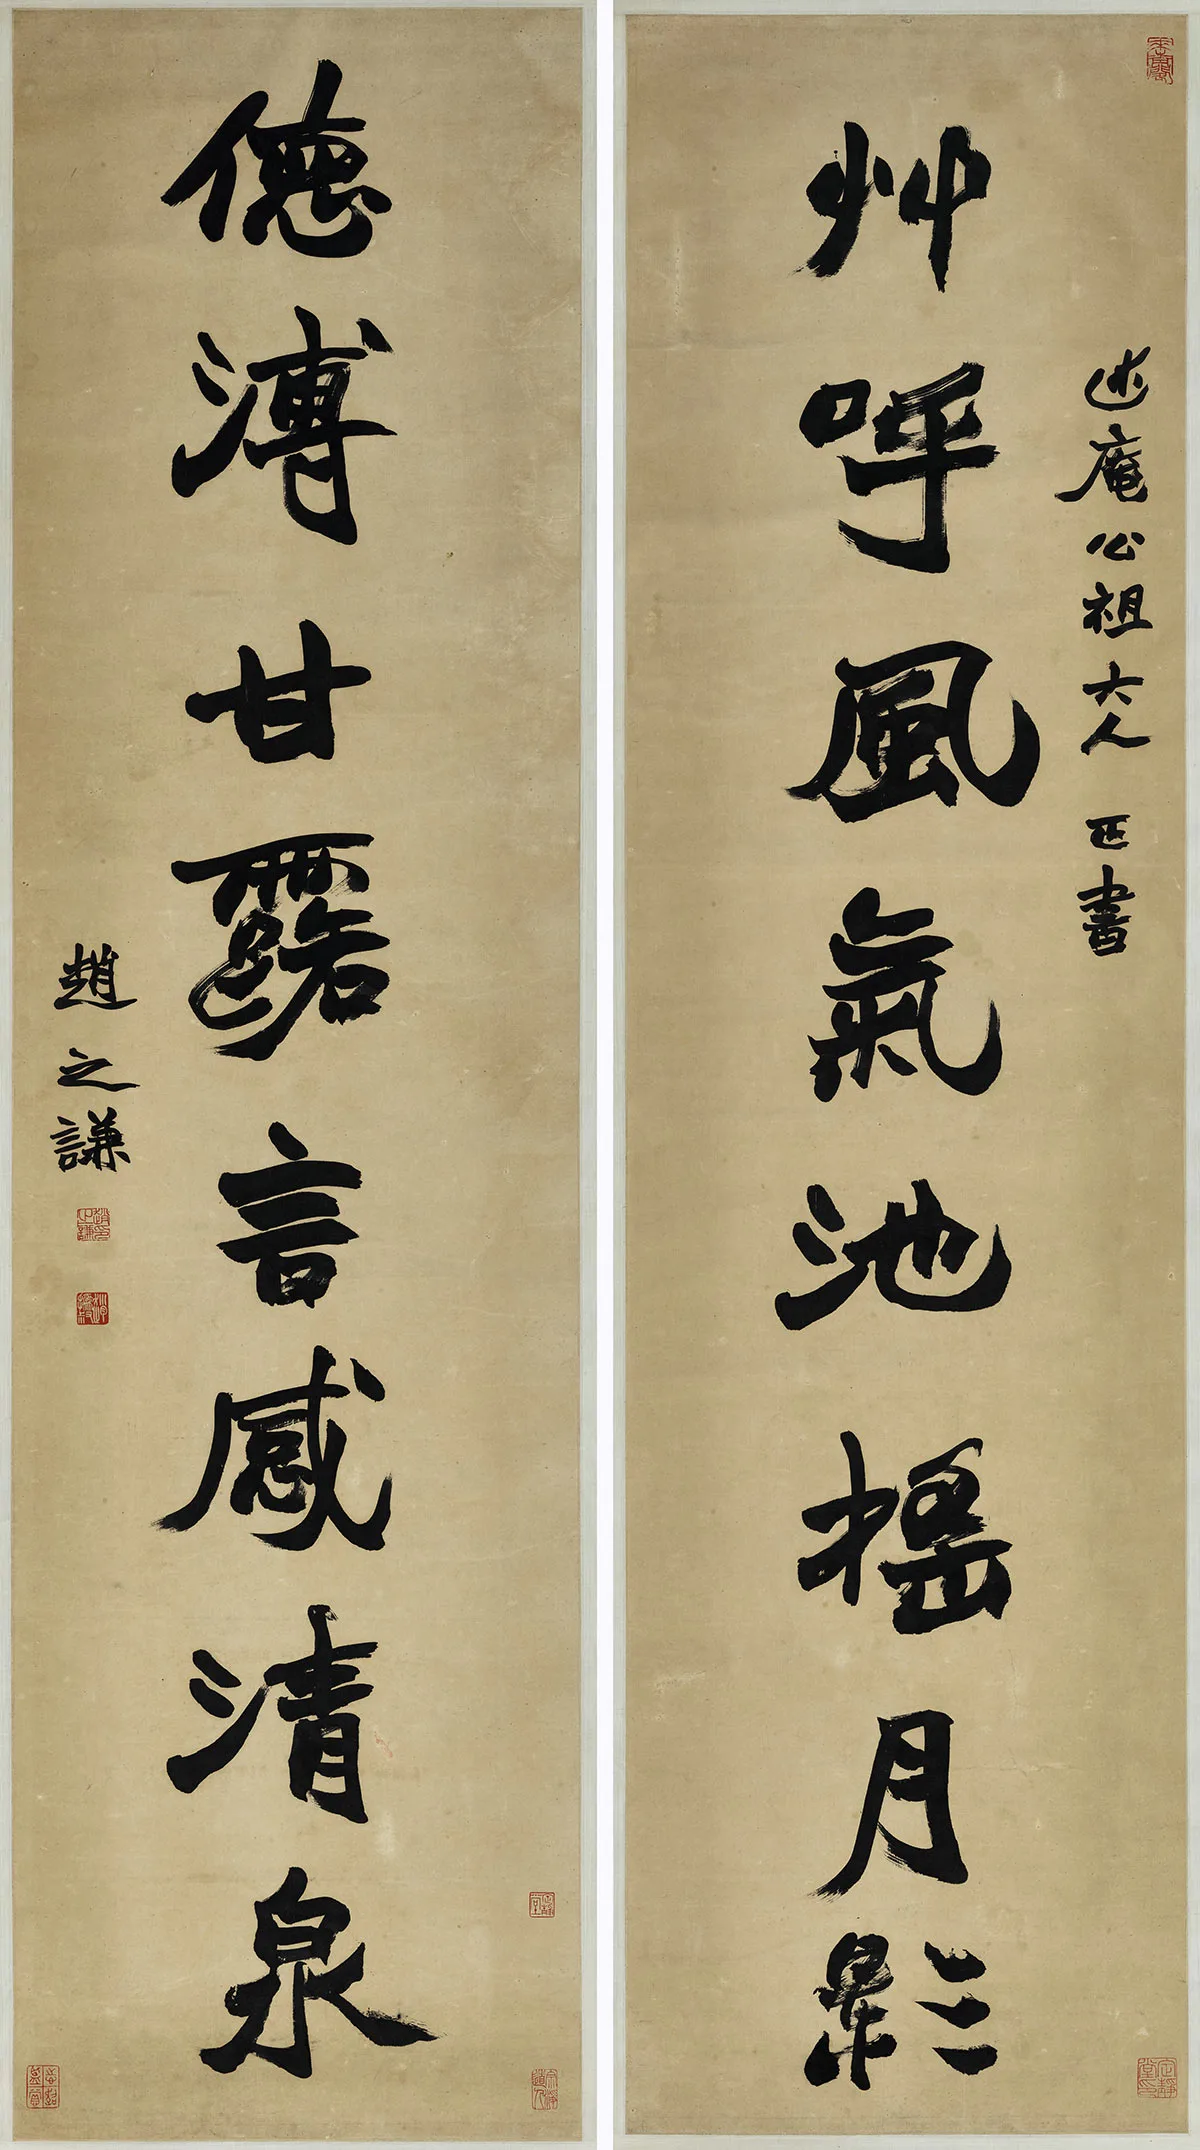 艸呼風氣池榣月影
述庵公祖大人 正書
德溥甘露言感清泉
趙之謙